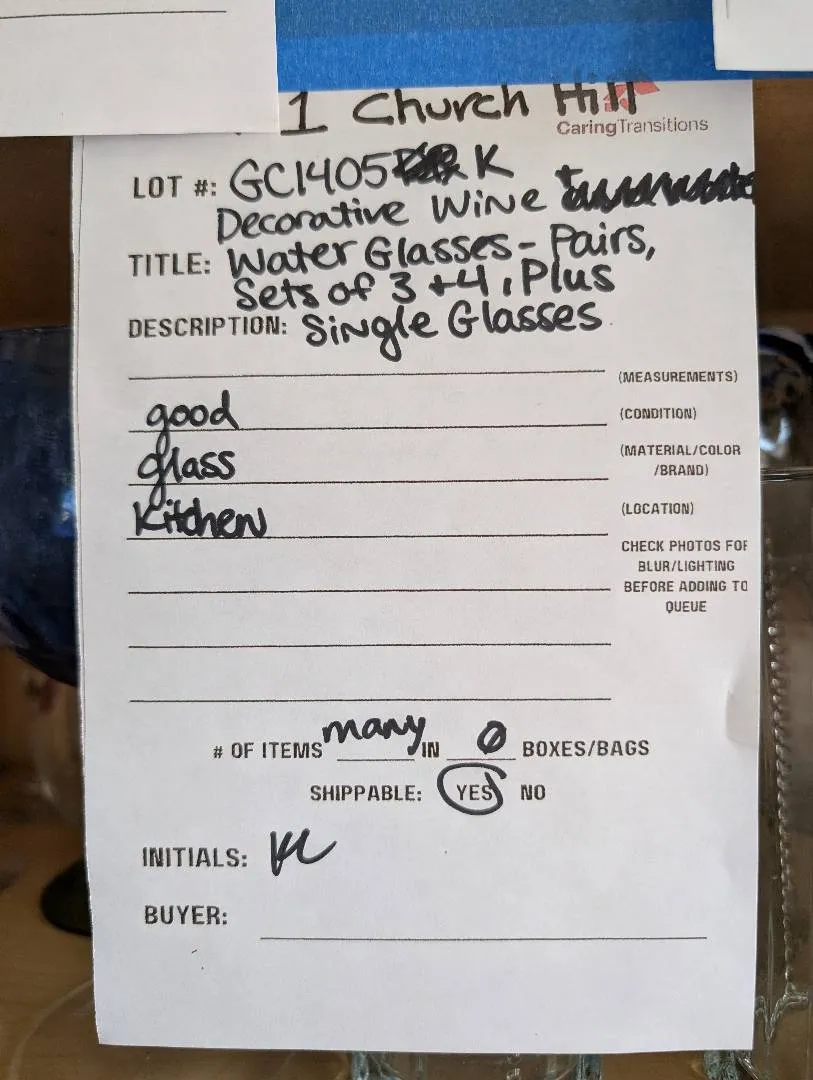 1 Church Hill
CaringTransitions
LOT #: GC1405 K
Decorative Wine +
TITLE: Water Glasses - Pairs,
Sets of 3 + 4, Plus
DESCRIPTION: Single Glasses
(MEASUREMENTS)
good (CONDITION)
glass (MATERIAL/COLOR
/BRAND)
Kitchen (LOCATION)
CHECK PHOTOS FOR
BLUR/LIGHTING
BEFORE ADDING TO
QUEUE
# OF ITEMS many IN 0 BOXES/BAGS
SHIPPABLE: YES NO
INITIALS: KC
BUYER: